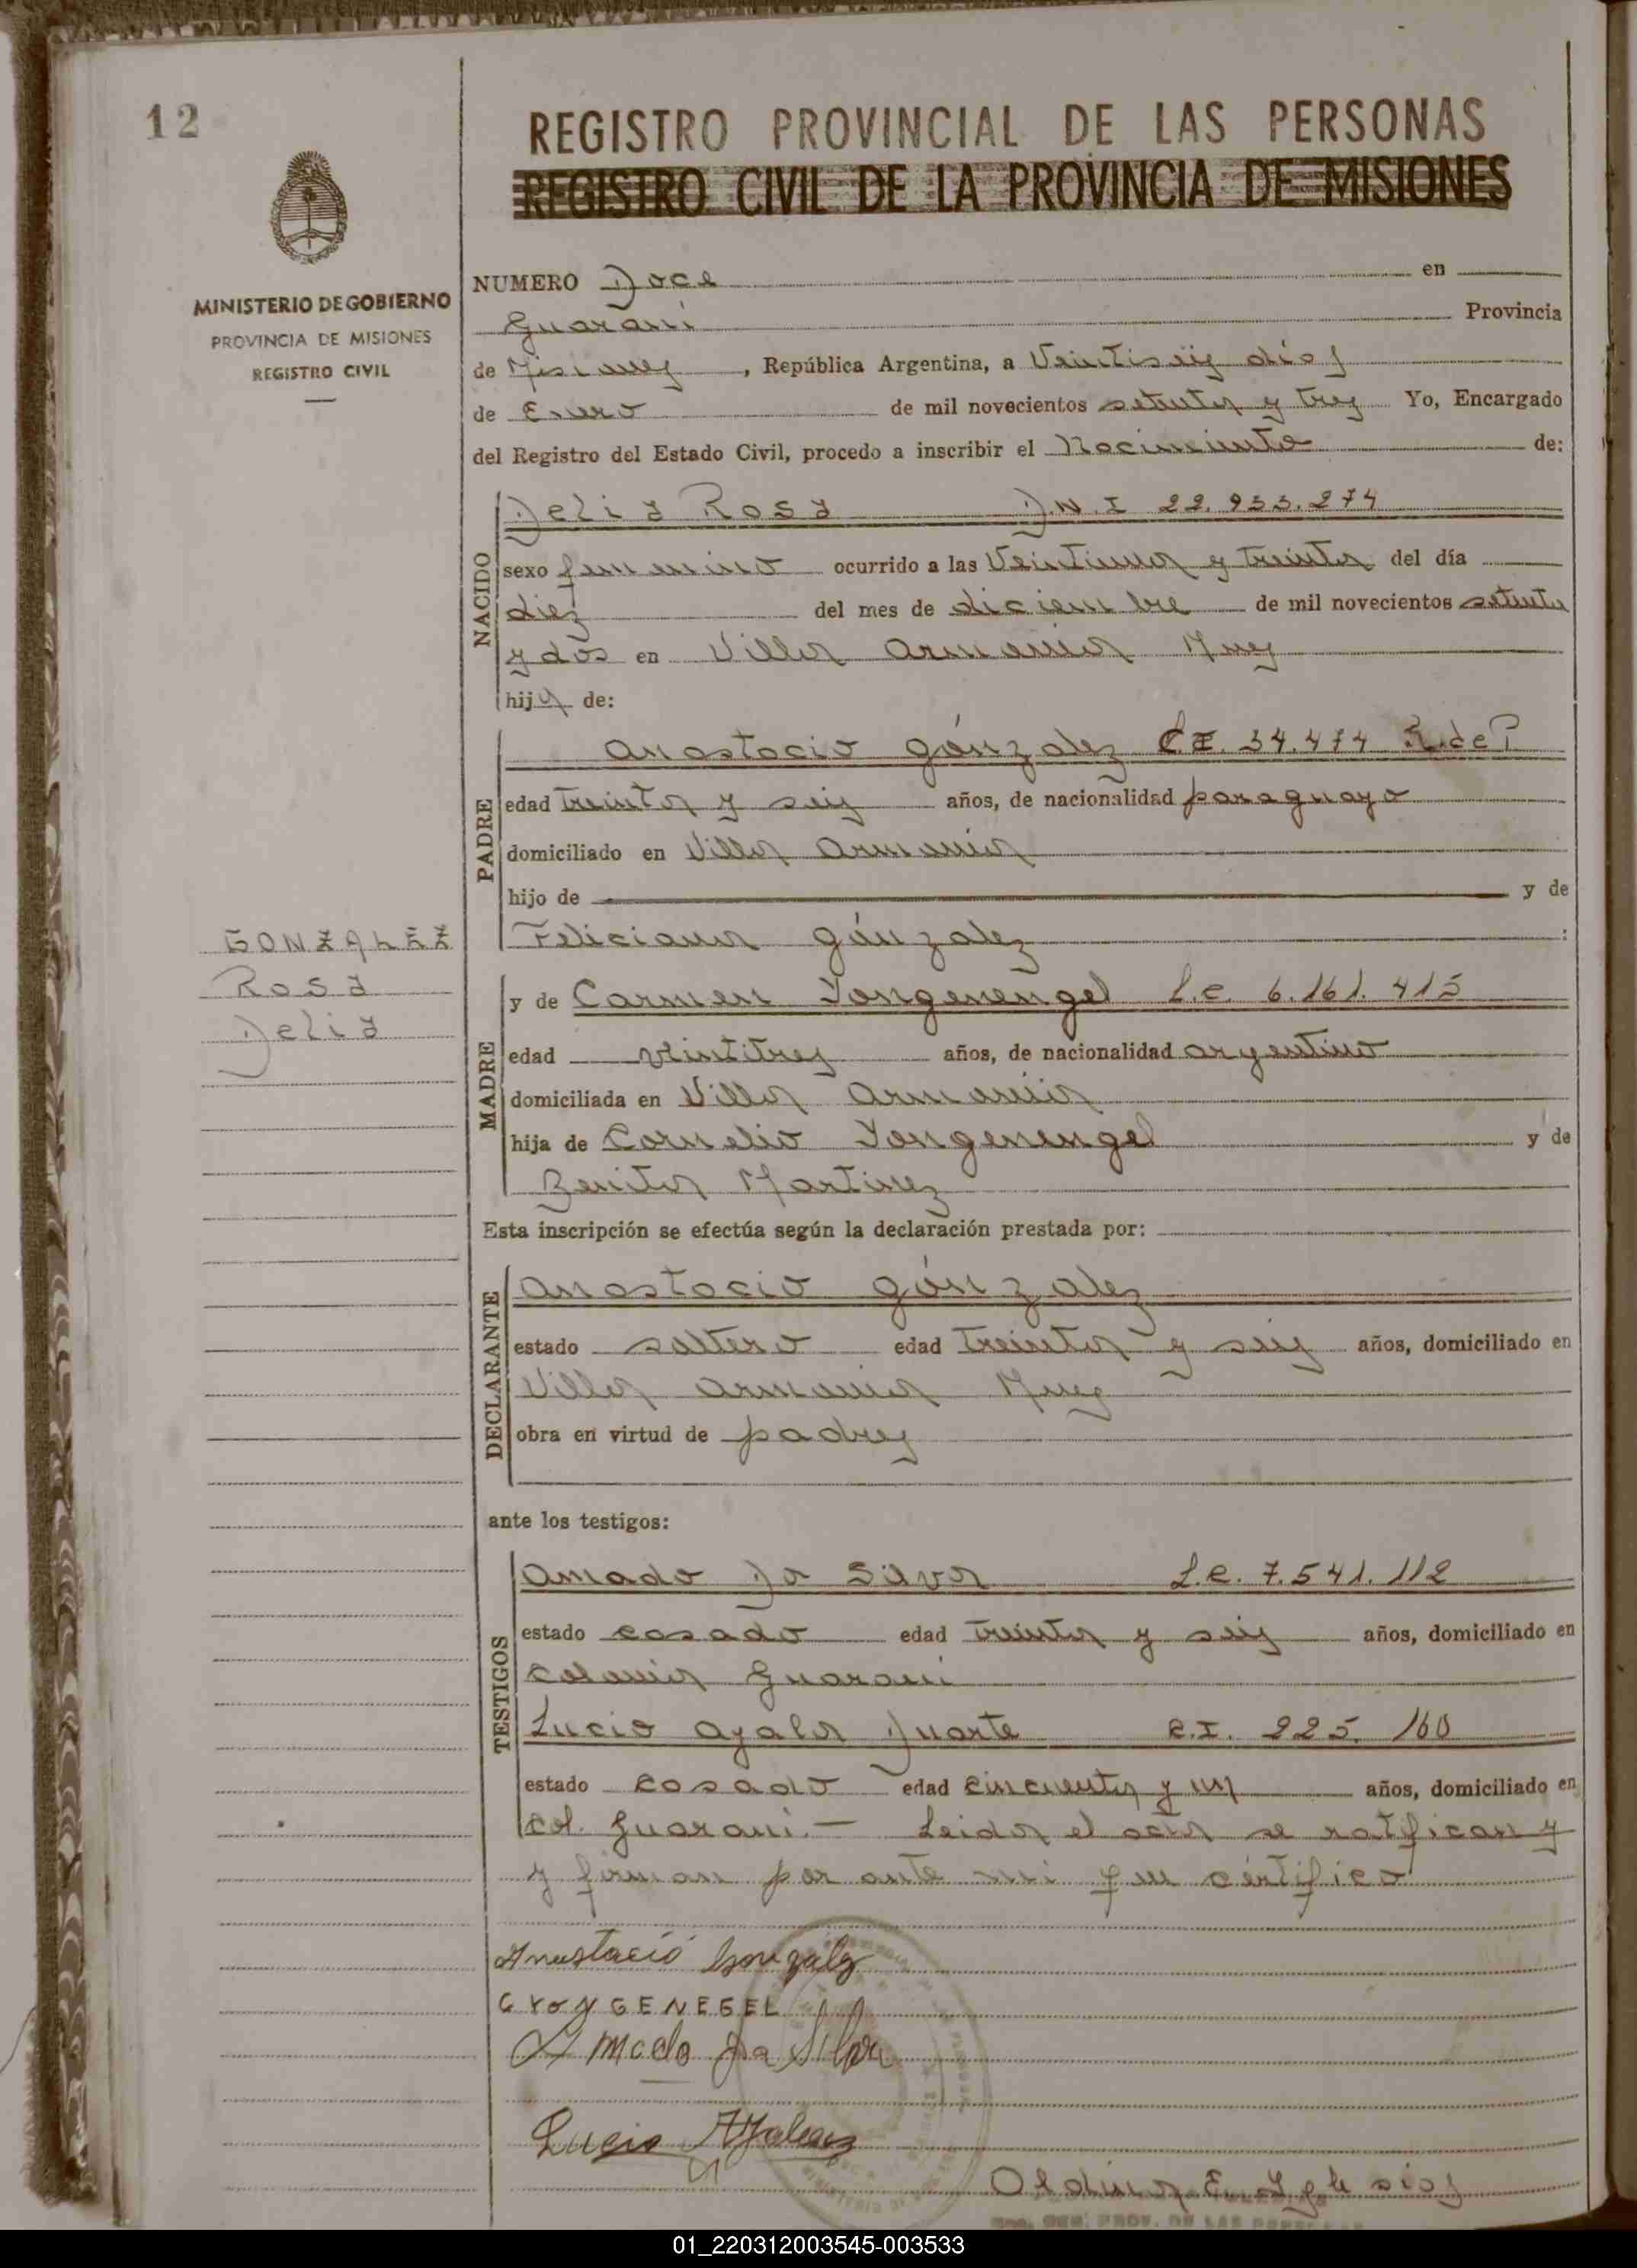 12
REGISTRO PROVINCIAL DE LAS PERSONAS
REGISTRO CIVIL DE LA PROVINCIA DE MISIONES
MINISTERIO DE GOBIERNO
PROVINCIA DE MISIONES
REGISTRO CIVIL
NUMERO Doce en
Guarani Provincia
de Misiones, República Argentina, a Veintiseis dias
de Enero de mil novecientos setenta y tres Yo, Encargado
del Registro del Estado Civil, procedo a inscribir el Nacimiento de:
NACIDO
Delia Rosa D.N.I 22.933.274
sexo femenino ocurrido a las Veintiuna y treinta del día
diez del mes de diciembre de mil novecientos setenta
y dos en Villa Armonia Mnes
hija de:
PADRE
Anastacio Gónzalez C.I. 34.474 R. de P.
edad treinta y seis años, de nacionalidad paraguayo
domiciliado en Villa Armonia
hijo de y de
Feliciana Gónzalez :
GONZALEZ
Rosa
Delia
MADRE
y de Carmen Yongenengel L.C. 6.161.415
edad veintitres años, de nacionalidad argentino
domiciliada en Villa Armonia
hija de Cornelio Yongenengel y de
Benita Martinez
Esta inscripción se efectúa según la declaración prestada por:
DECLARANTE
Anastacio Gónzalez
estado soltero edad treinta y seis años, domiciliado en
Villa Armonia Mnes
obra en virtud de padres
ante los testigos:
TESTIGOS
Amado Da Silva L.E. 7.541.112
estado casado edad treinta y seis años, domiciliado en
Colonia Guarani
Lucio Ayala Duarte C.I. 225.160
estado casado edad cincuenta y un años, domiciliado en
Col. Guarani.— Leida el acta se ratifican y
y firman por ante mi que certifico
Anastacio Gonzalz
C YOYGENEGEL
Amado Da Silva
Lucio Ayala
Oldina E. Iglesias
01_220312003545-003533